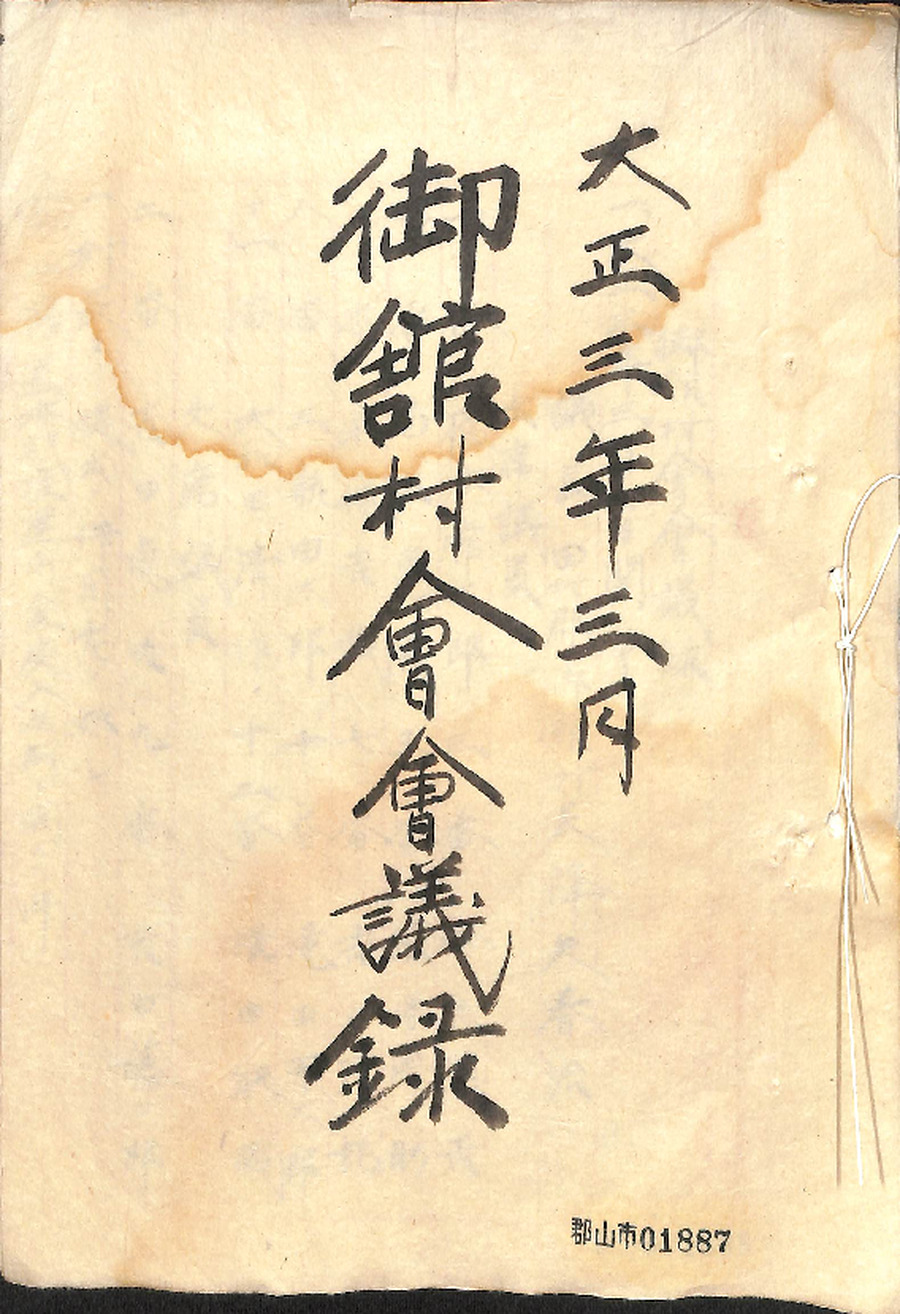 大正三年三月
御舘村會會議録
郡山市01887